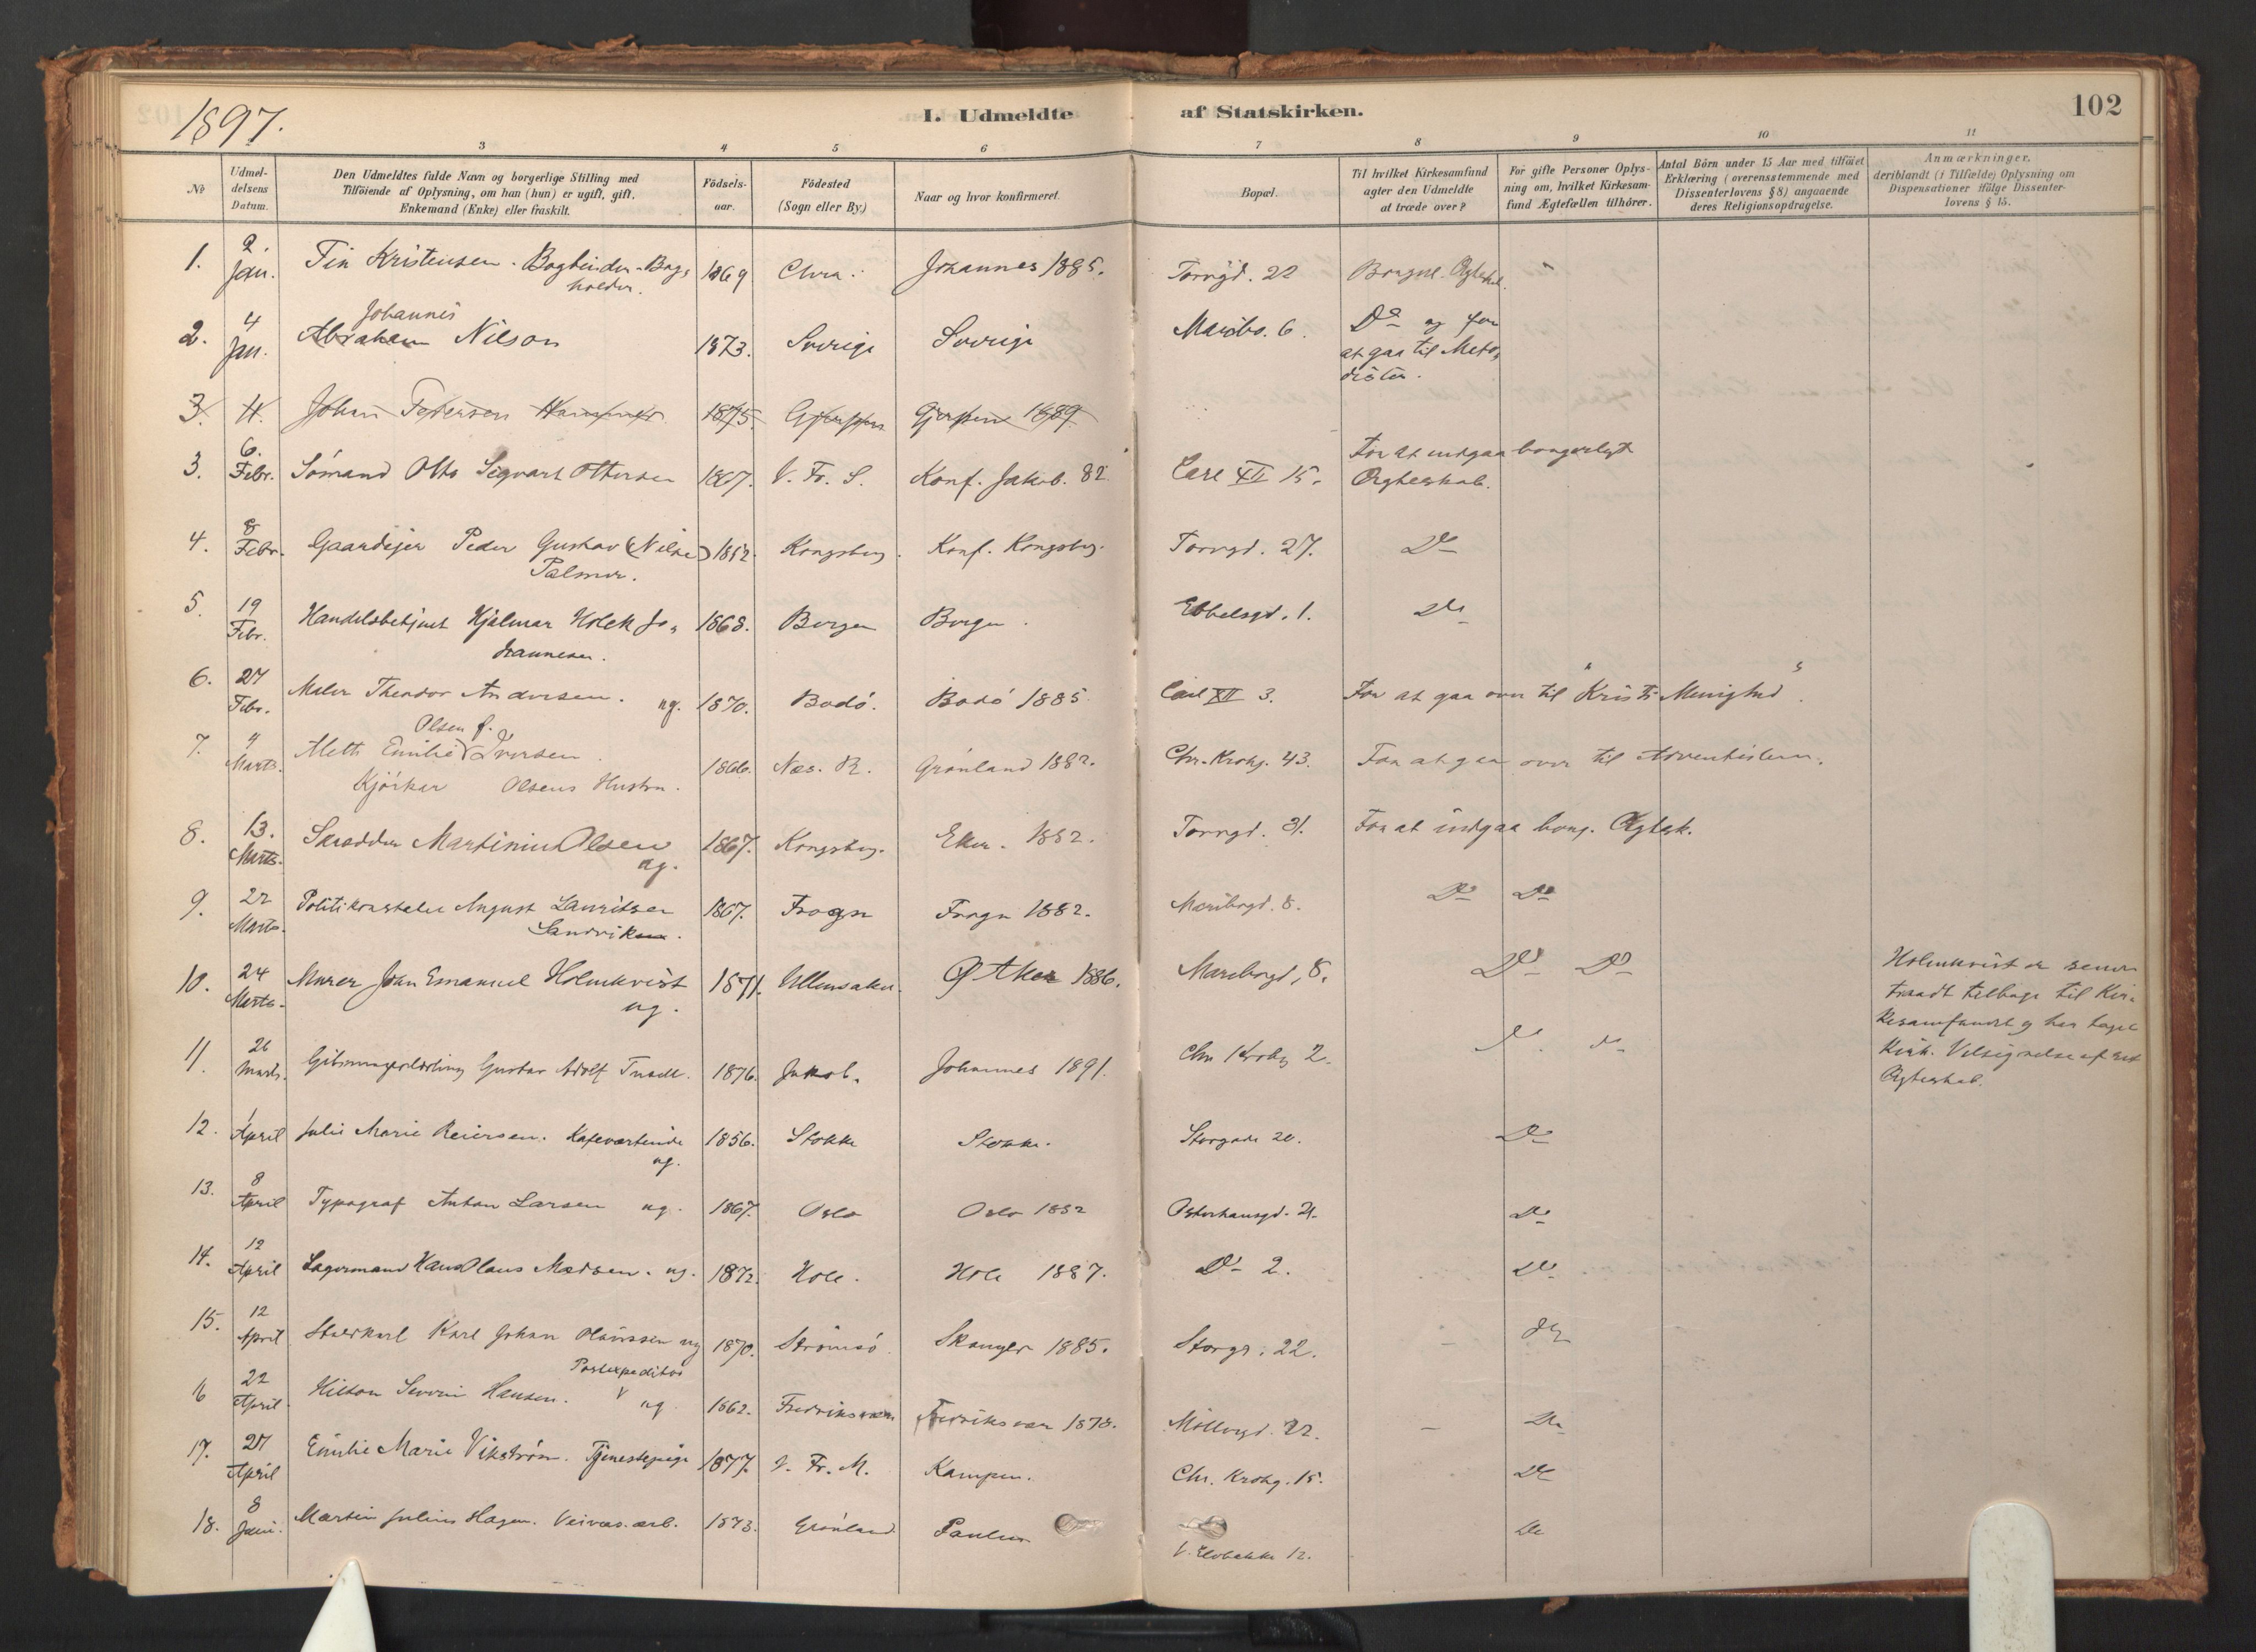 1897.
I. Udmeldte af Statskirken.
102
3 4 5 6 7 8 9 10 11
No
Udmeldelsens Datum.
Den Udmeldtes fulde Navn og borgerlige Stilling med
Tilföiende af Oplysning, om han (hun) er ugift, gift,
Enkemand (Enke) eller fraskilt.
Födsels-
aar.
Födested
(Sogn eller By.)
Naar og hvor konfirmeret.
Bopæl.
Til hvilket Kirkesamfund
agter den Udmeldte
at træde over?
For gifte Personer Oplys-
ning om, hvilket Kirkesam-
fund Ægtefællen tilhörer.
Antal Börn under 15 Aar med tilföiet
Erklæring (overensstemmende med
Dissenterlovens § 8) angaaende
deres Religionsopdragelse.
Anmærkninger,
deriblandt (i Tilfælde) Oplysning om
Dispensationer ifölge Dissenter-
lovens § 15.
1. 2. Jan. Fin Kristensen. Bogbinder-Bog-
holder. 1869 Chra. Johannes 1885. Torvgd. 22 Borgerl. Ægtesk.
Johannes
2. 4 Jan. Abraham Nilson 1873. Sverige Sverige Maribo. 6. Do og for
at gaa til Meto-
dister.
3. 4. Johan Pedersen 1875. Gjerpen Gjerpen 1889
3. 6. Febr. Sömand Otto Sigvart Ottersen 1867. V. Fr. S. Konf. Jakob. 82. Carl XII 15. For at indgaa borgerligt
Ægteskab.
4. 8 Febr. Gaardejer Peder Gustav (Nilsen) 1852. Kongsberg. Konf. Kongsbg. Torvgd. 27. Do
Palmer.
5. 19 Febr. Handelsbetjent Hjalmar Holck Jo- 1868. Bergen Bergen. Ebbelsgd. 1. Do
hannesen.
6. 27 Febr. Maler Theodor Andersen. ug. 1870. Bodö. Bodö 1885 Carl XII 3. For at gaa over til "Kristi Menighed".
Olsen f.
7. 4 Marts. Meth Emilie Iversen. 1866. Næs. R. Grönland 1882. Chr. Krohg. 43. For at gaa over til Adventisterne.
Kjörkar Olsens Hustru.
8. 13. Marts. Skrædder Martinius Olsen 1867. Kongsberg. Eker. 1882. Torvgd. 31. For at indgaa borg. Ægtesk.
ug.
9. 22 Marts. Politikonstabel August Lauritsen 1867. Frogn Frogn 1882. Maribogd. 8. Do Do
Sandviken.
10. 24 Marts. Murer Johan Emanuel Holmkvist 1871. Ullensaker. Ø Aker 1886. Maribogd. 8. Do Do
ug.
Holmkvist er senere
traadt tilbage til Kir-
kesamfundet og har taget
Kirk. Velsignelse af sit
Ægteskab.
11. 26 Marts. Gustav Adolf 1876. Jakob. Johannes 1891. Chr. Krohg 2. Do Do
12. 1 April Julie Marie Reiersen. Kafeværtinde 1856. Stokke Stokke. Storgade 20. Do
ug.
13. 8 April Typograf Anton Larsen ug. 1867. Oslo Oslo 1882 Osterhausgd. 21. Do
14. 12 April Lagermand Hans Olaus Madsen. ug. 1872. Hole. Hole 1887. Do 2. Do
15. 12 April Staldkarl Karl Johan Olaussen ug 1870. Strömsö. Skauger 1885. Storgd. 22. Do
Postexpeditor
16 22 April Severin Hansen. ug. 1862. Fredriksværn Fredriksværn 1878. Möllergd. 22. Do
17. 27 April Emilie Marie Vikström. Tjenestepige 1877. V. Fr. M. Kampen. Chr. Krohg. 15. Do
18. 8 Juni. Martin Julius Hagen. Veivæs. arb. 1873. Grönland Paulus V. Elvebakke 12. Do